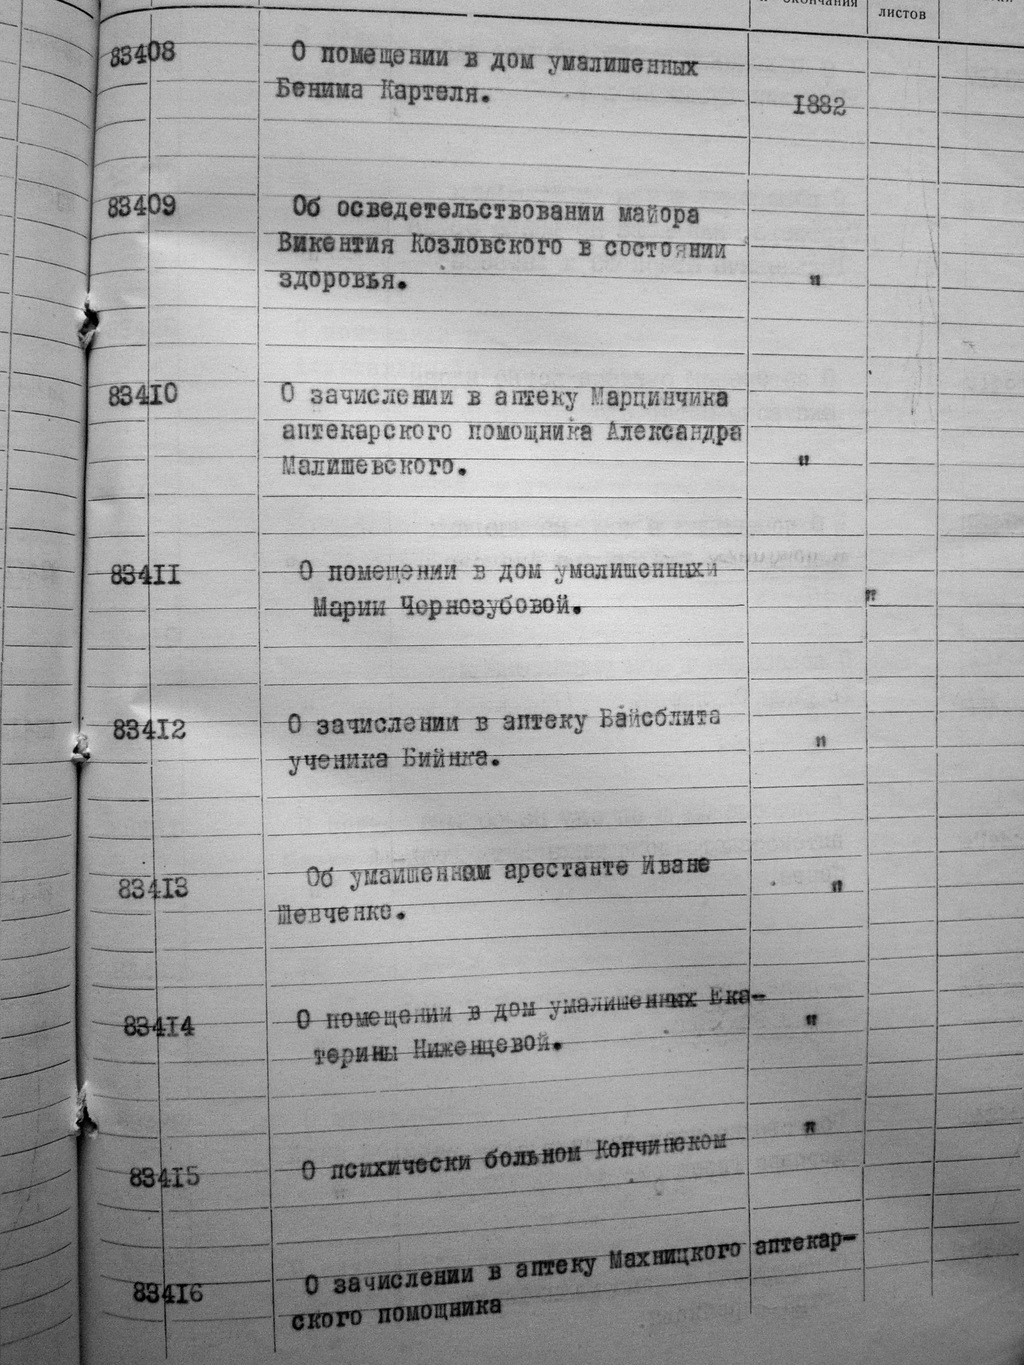 окончания
листов
83408 О помещении в дом умалишенных
Бенима Картеля.
1882
83409 Об осведетельствовании майора
Викентия Козловского в состоянии
здоровья. "
83410 О зачислении в аптеку Марцинчика
аптекарского помощника Александра
Малишевского. "
83411 О помещении в дом умалишенных
Марии Чернозубовой. "
83412 О зачислении в аптеку Вайсблита
ученика Бийнка. "
83413 Об умаишенном арестанте Иване
Шевченке. "
83414 О помещении в дом умалишенных Ека-
терины Ниженцевой. "
83415 О психически больном Копчинском "
83416 О зачислении в аптеку Махницкого аптекар-
ского помощника